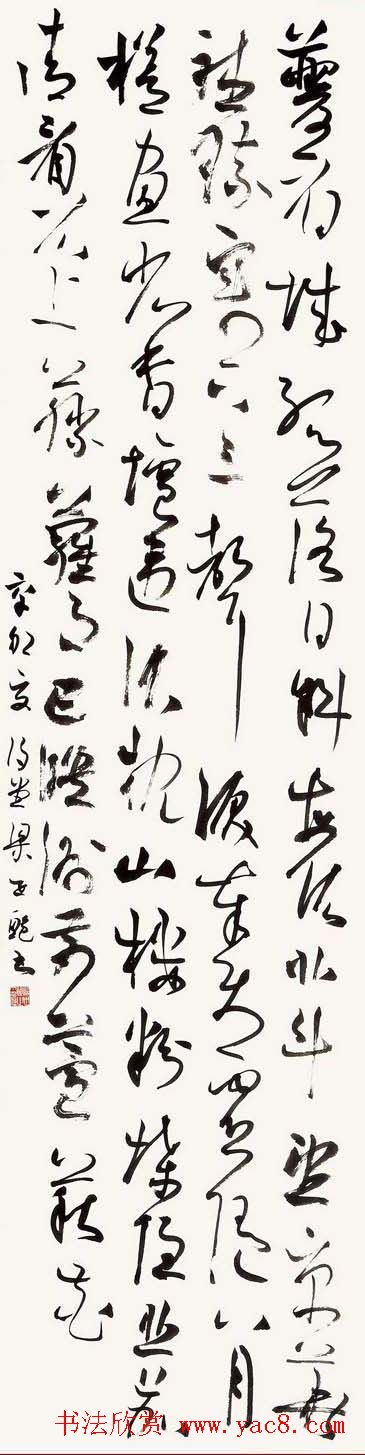 夔府城孤落日斜每依北斗望京華
聽猿實下三聲淚奉使虛隨八月
槎畫省香爐違伏枕山樓粉堞隱悲笳
請看石上藤蘿月已映洲前蘆荻花
辛卯夏 梁 書
书法欣赏 www.yac8.com